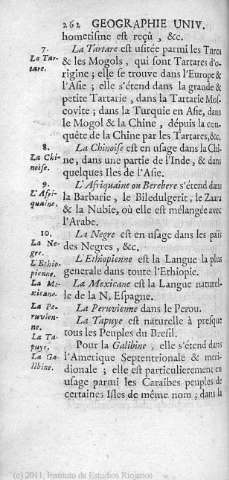 262 GEOGRAPHIE UNIV.
hometisme est reçû, &c.
7. La Tartare.
La Tartare est usitée parmi les Turcs
& les Mogols, qui sont Tartares d'o-
rigine; elle se trouve dans l'Europe &
l'Asie; elle s'étend dans la grande &
petite Tartarie, dans la Tartarie Mos-
covite; dans la Turquie en Asie, dans
le Mogol & la Chine, depuis la con-
quête de la Chine par les Tartares, &c.
8. La Chinoise.
La Chinoise est en usage dans la Chi-
ne, dans une partie de l'Inde, & dans
quelques Isles de l'Asie.
9. L'Afriquaine.
L'Afriquaine ou Berebere s'étend dans
la Barbarie, le Biledulgerit, le Zara
& la Nubie, où elle est mélangée avec
l'Arabe.
10. La Negre.
La Negre est en usage dans les païs
des Negres, &c.
L'Ethiopienne.
L'Ethiopienne est la Langue la plus
generale dans toute l'Ethiopie.
La Mexicane.
La Mexicane est la Langue naturel-
le de la N. Espagne.
La Peruvienne.
La Peruvienne dans le Perou.
La Tapuye.
La Tapuye est naturelle à presque
tous les Peuples du Bresil.
La Galibine.
Pour la Galibine, elle s'étend dans
l'Amerique Septentrionale & meri-
dionale; elle est particulierement en
usage parmi les Caraïbes peuples de
certaines Isles de même nom; dans la
(c) 2011, Instituto de Estudios Riojanos